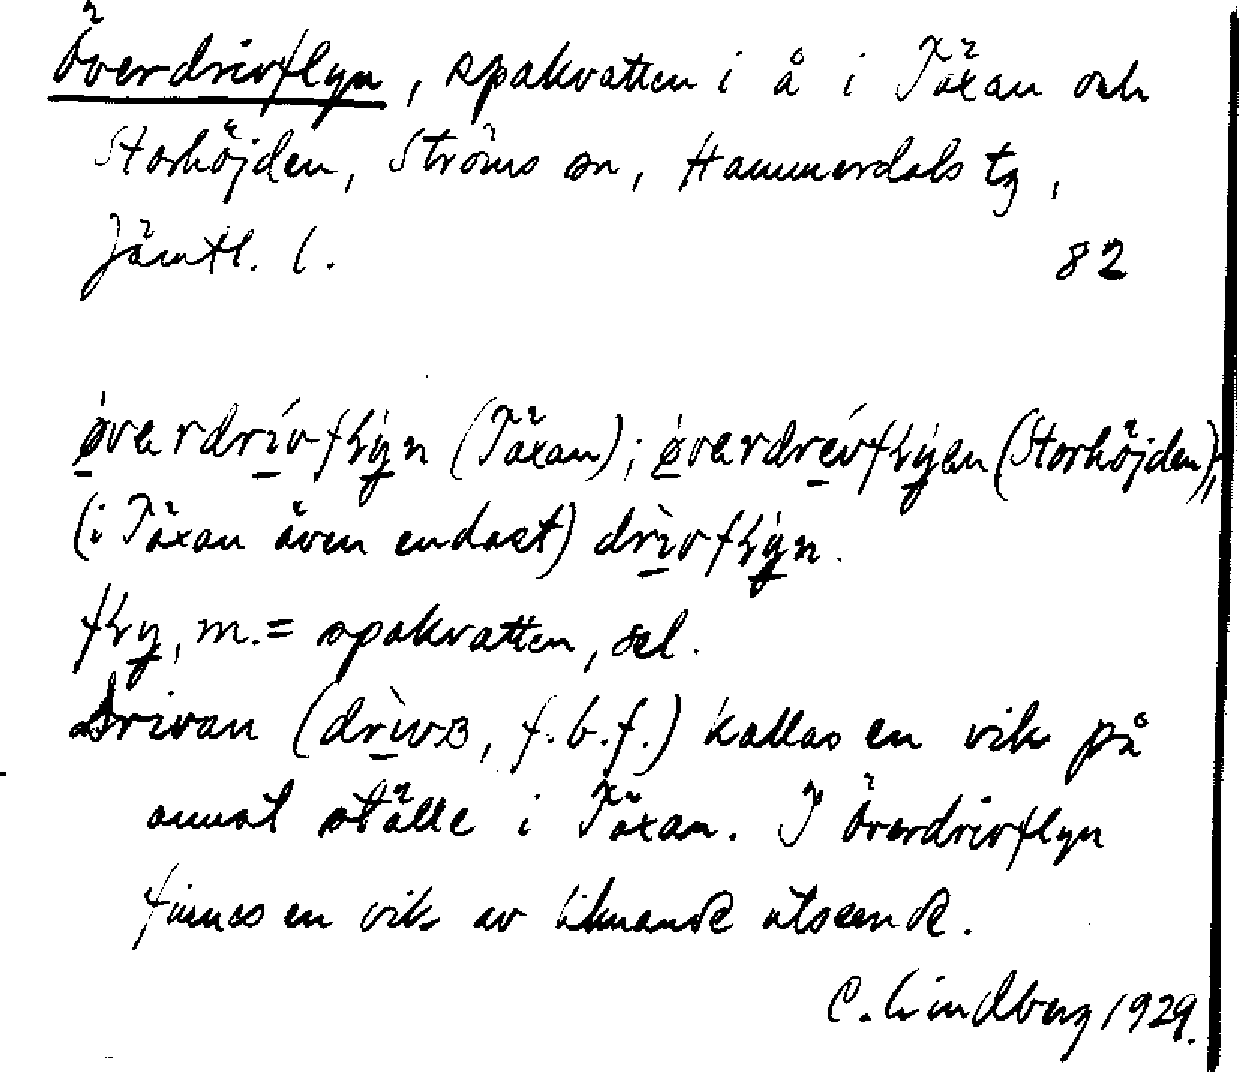 Överdrivflyn, spakvatten i å i Täxan och
Storhöjden, Ströms sn, Hammerdals tg,
Jämtl. l.
82
øvərdrívfɫy̆n (Täxan); øvərdrévfɫyən (Storhöjden);
(i Täxan även endast) drìvfɫy̆n.
fɫy, m. = spakvatten, sel.
Drivan (drìvɞ, f.b.f.) kallas en vik på
annat ställe i Täxan. I Överdrivflyn
finnes en vik av liknande utseende.
C. Lindberg 1929.